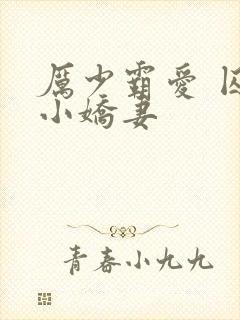 厲少霸愛 囚
小嬌妻
青春小九九